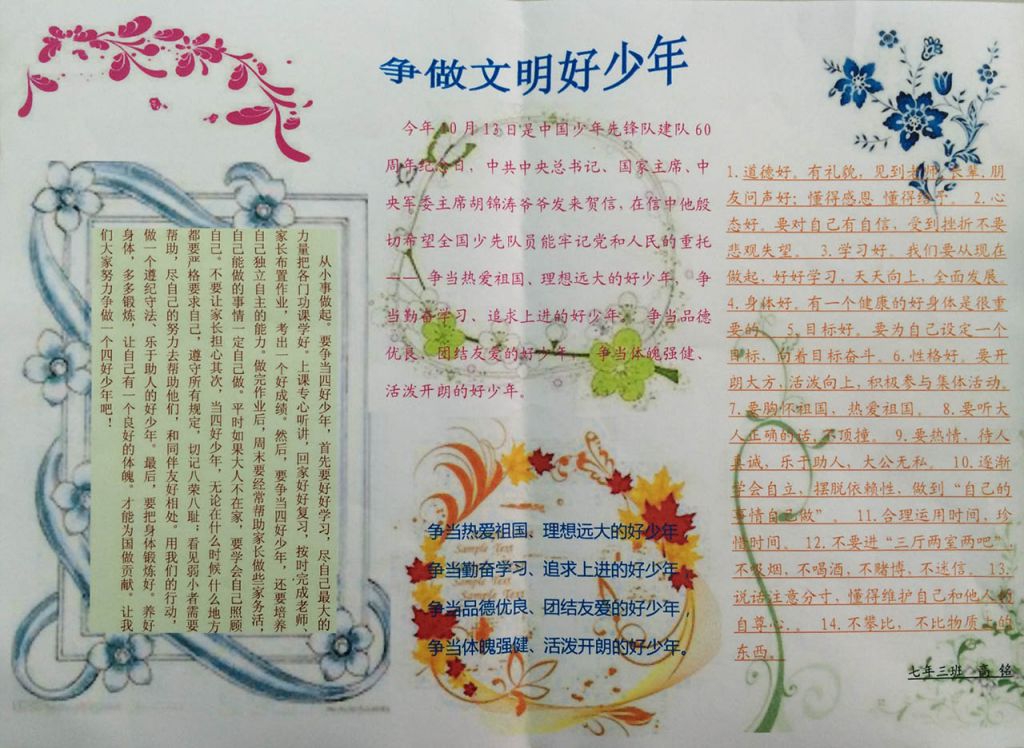 争做文明好少年
从小事做起。要争当四好少年，首先要好好学习，尽自己最大的
力量把各门功课学好。上课专心听讲，回家好好复习，按时完成老师、
家长布置作业，考出一个好成绩。然后，要争当四好少年，还要培养
自己独立自主的能力。做完作业后，周末要经常帮助家长做些家务活，
自己能做的事情一定自己做。平时如果大人不在家，要学会自己照顾
自己。不要让家长担心其次，当四好少年，无论在什么时候什么地方
都要严格要求自己，遵守所有规定，切记八荣八耻；看见弱小者需要
帮助，尽自己的努力去帮助他们，和同伴友好相处。用我们的行动，
做一个遵纪守法、乐于助人的好少年。最后，要把身体锻炼好。养好
身体，多多锻炼，让自己有一个良好的体魄。才能为国做贡献。让我
们大家努力争做一个四好少年吧！
今年10月13日是中国少年先锋队建队60
周年纪念日，中共中央总书记、国家主席、中
央军委主席胡锦涛爷爷发来贺信，在信中他殷
切希望全国少先队员能牢记党和人民的重托
—— 争当热爱祖国、理想远大的好少年， 争
当勤奋学习、追求上进的好少年， 争当品德
优良、团结友爱的好少年， 争当体魄强健、
活泼开朗的好少年。
争当热爱祖国、理想远大的好少年，
Sample Text
争当勤奋学习、追求上进的好少年，
争当品德优良、团结友爱的好少年，
争当体魄强健、活泼开朗的好少年。
1.道德好。有礼貌，见到老师,长辈,朋
友问声好；懂得感恩 懂得给予。 2.心
态好。要对自己有自信，受到挫折不要
悲观失望。 3.学习好。我们要从现在
做起，好好学习，天天向上，全面发展。
4.身体好。有一个健康的好身体是很重
要的。 5.目标好。要为自己设定一个
目标，向着目标奋斗。6.性格好。要开
朗大方，活泼向上，积极参与集体活动。
7.要胸怀祖国、热爱祖国。 8.要听大
人正确的话,不顶撞。 9.要热情，待人
真诚，乐于助人，大公无私。 10.逐渐
学会自立，摆脱依赖性，做到“自己的
事情自己做” 11.合理运用时间，珍
惜时间。 12.不要进“三厅两室两吧”，
不吸烟，不喝酒，不赌博，不迷信。 13.
说话注意分寸，懂得维护自己和他人的
自尊心.。 14.不攀比，不比物质上的
东西。
七年三班 高 铭